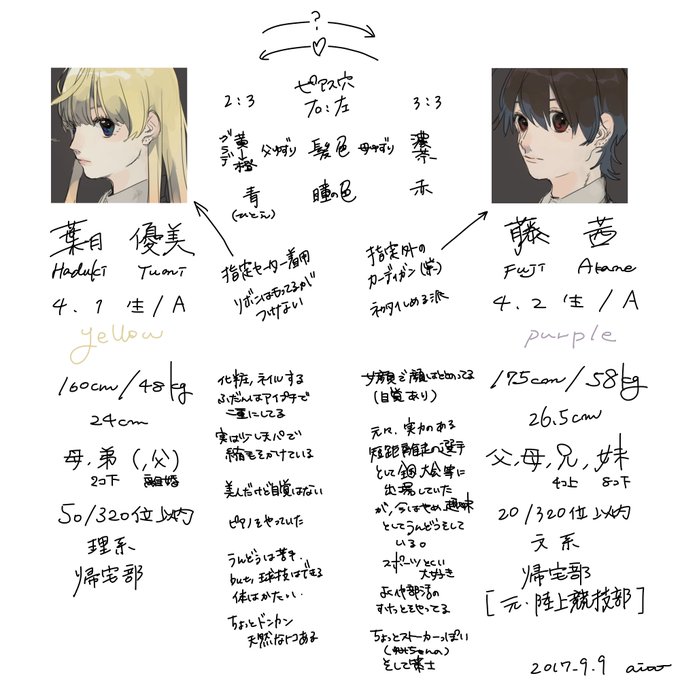 ?
♡
ピアス穴
2:3
プロ:左
3:3
グラデ
黄→橙
父ゆずり
髪色
母ゆずり
濃紫
青
(ひとえ)
瞳の色
赤
葉月 優美
Haduki Yuumi
4.1 生/A
yellow
160cm/48kg
24cm
母,弟(,父)
2コ下 離婚
50/320位以内
理系
帰宅部
指定セーター着用
リボンはもってるが
つけない
化粧,ネイルする
ふだんはアイプチで
二重にしてる
実は少し天パで
縮毛をかけている
美人だけど自覚はない
ピアノをやっていた
うんどうは苦手.
but, 球技はできる
体はかたい.
ちょっとドンカン
天然なとこある
指定外の
カーディガン(紫)
ネクタイしめる派
女顔で顔はととのってる
(自覚あり)
元々,実力のある
短距離走の選手
として全国大会等に
出場していた
が,今はやめ,趣味
としてうんどうをして
いる。
スポーツとくい
大好き
よくや部活の
すけっとをやってる
ちょっとストーカーっぽい
そして策士
藤 茜
Fuji Akane
4.2 生/A
purple
175cm/58kg
26.5cm
父,母,兄,妹
4コ上 8コ下
20/320位以内
文系
帰宅部
[元・陸上競技部]
2017.9.9 aioo